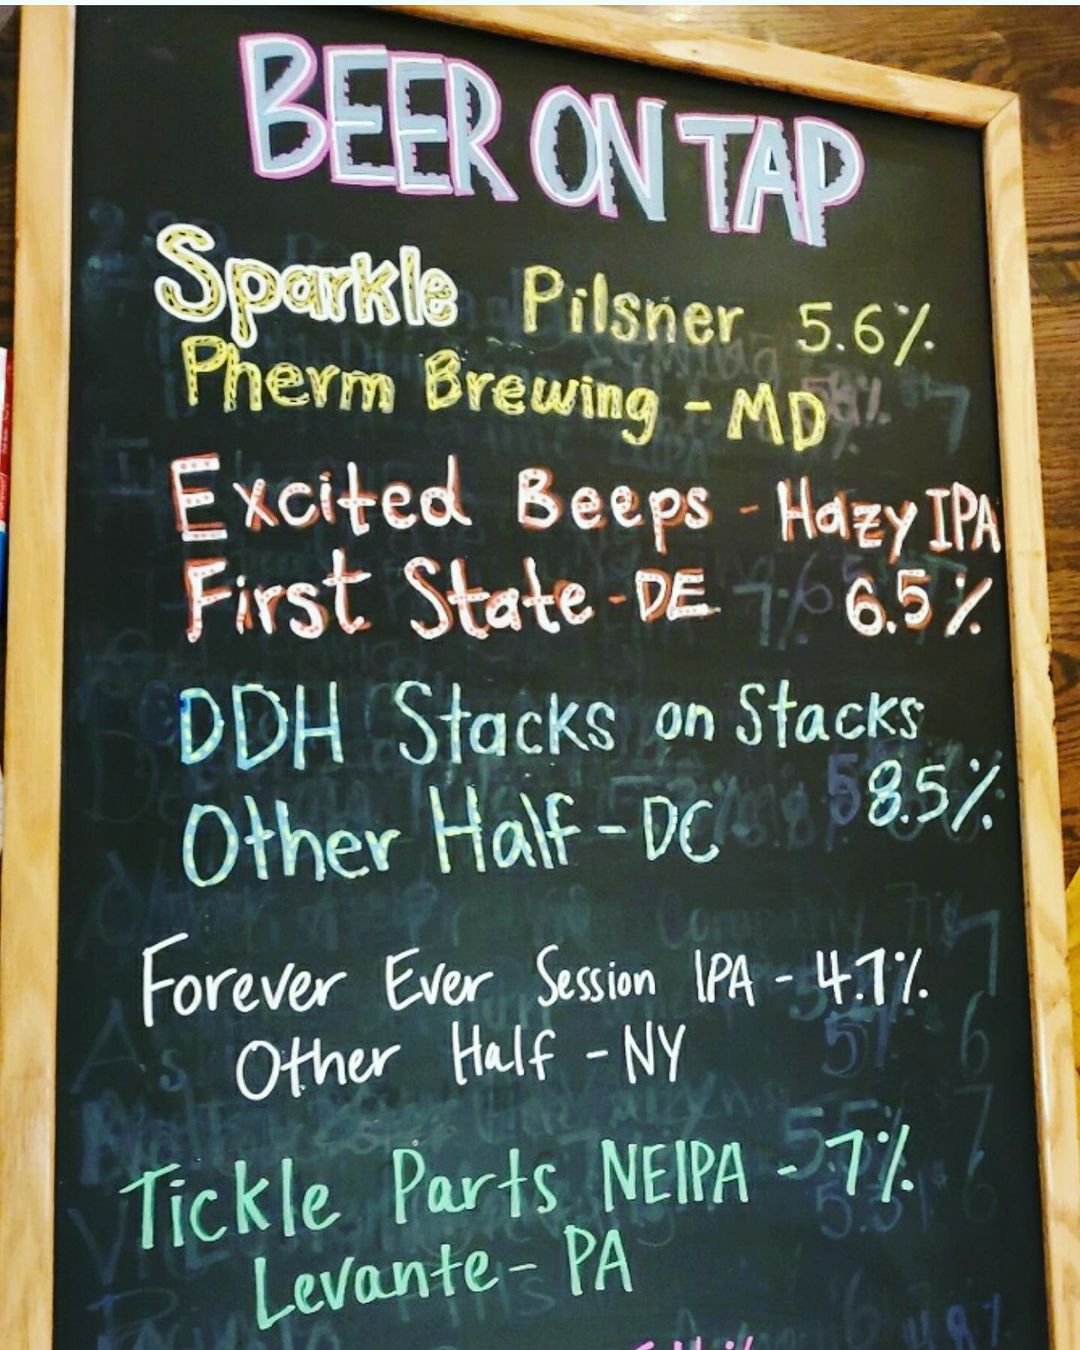 BEER ON TAP
Sparkle Pilsner 5.6%
Pherm Brewing - MD
Excited Beeps - Hazy IPA
First State - DE 6.5%
DDH Stacks on Stacks
8.5%
Other Half - DC
Forever Ever Session IPA - 4.7%
Other Half - NY
Tickle Parts NEIPA - 7%
Levante - PA